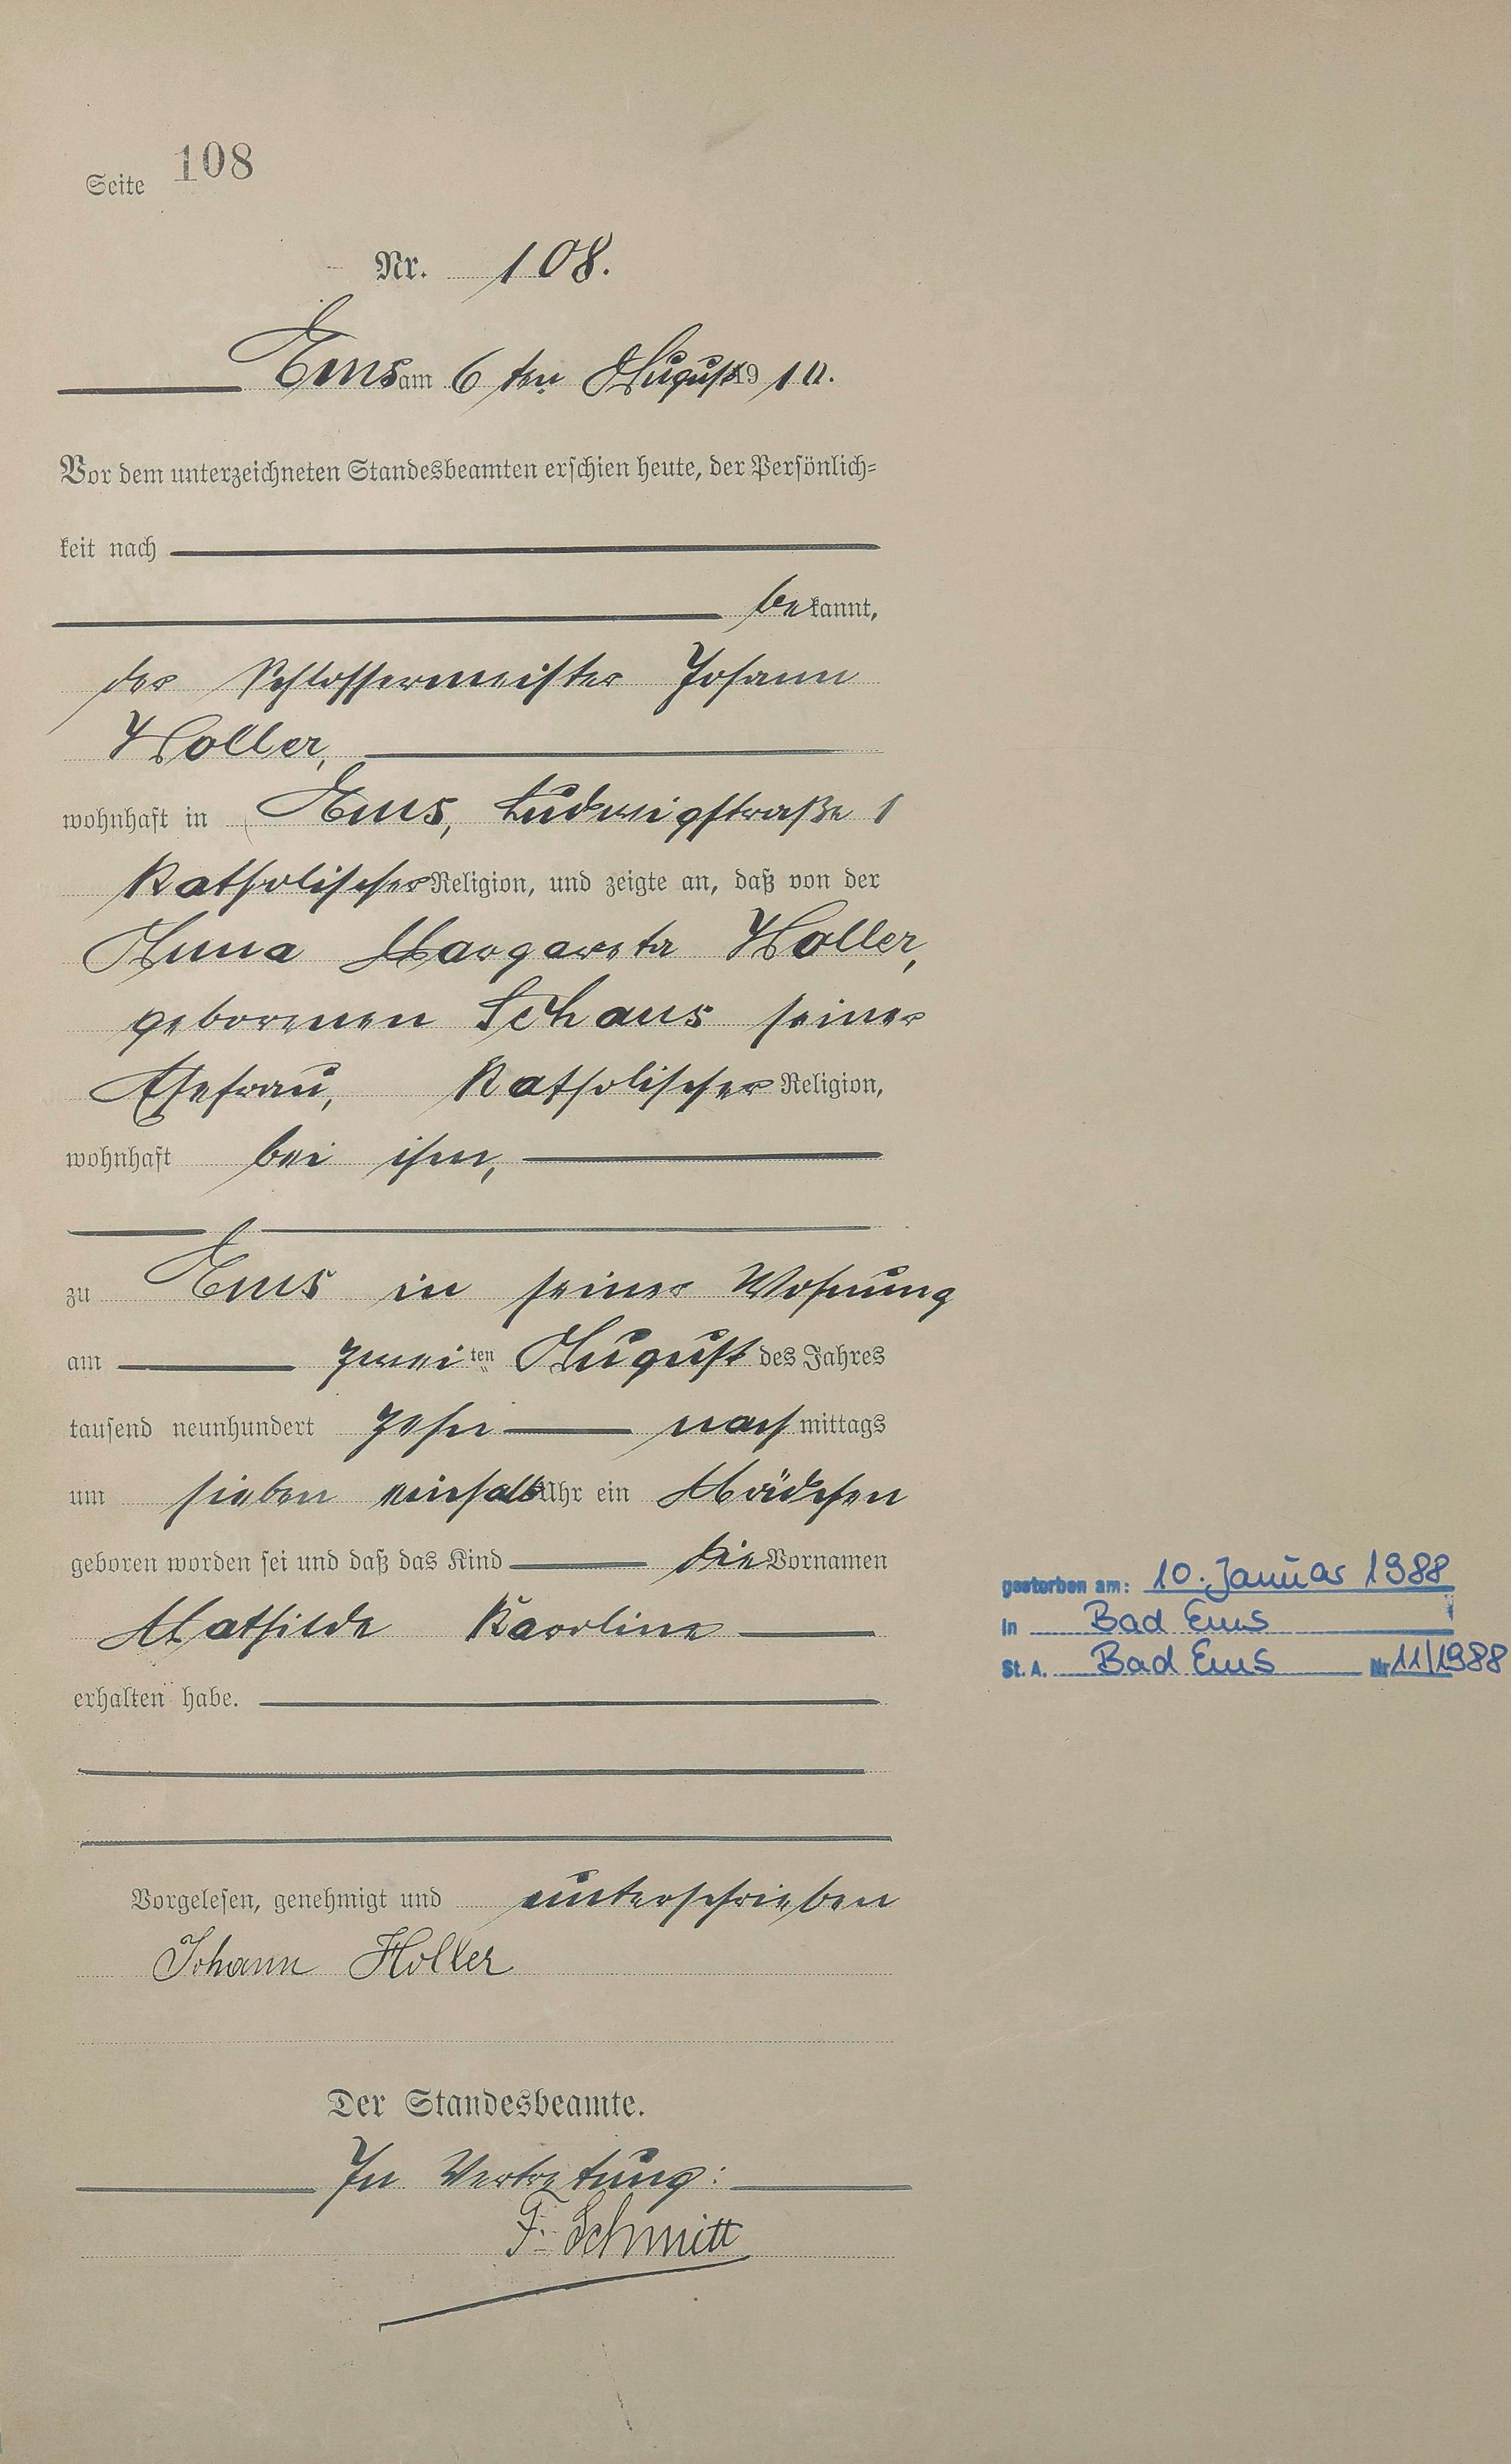 Seite 108
Nr. 108.
Ems am 6ten August 1910.
Vor dem unterzeichneten Standesbeamten erschien heute, der Persönlich-
keit nach
bekannt,
der Schlossermeister Johann
Holler,
wohnhaft in Ems, Ludwigstraße 1
katholischer Religion, und zeigte an, daß von der
Anna Margareta Holler,
geborenen Schaus seiner
Ehefrau, katholischer Religion,
wohnhaft bei ihm,
zu Ems in seiner Wohnung
am zweiten August des Jahres
tausend neunhundert zehn nachmittags
um sieben einhalb Uhr ein Mädchen
geboren worden sei und daß das Kind die Vornamen
Mathilde Karoline
erhalten habe.
gestorben am: 10. Januar 1988
In Bad Ems
St. A. Bad Ems Nr 11/1988
Vorgelesen, genehmigt und unterschrieben
Johann Holler
Der Standesbeamte.
In Vertretung:
F. Schmitt